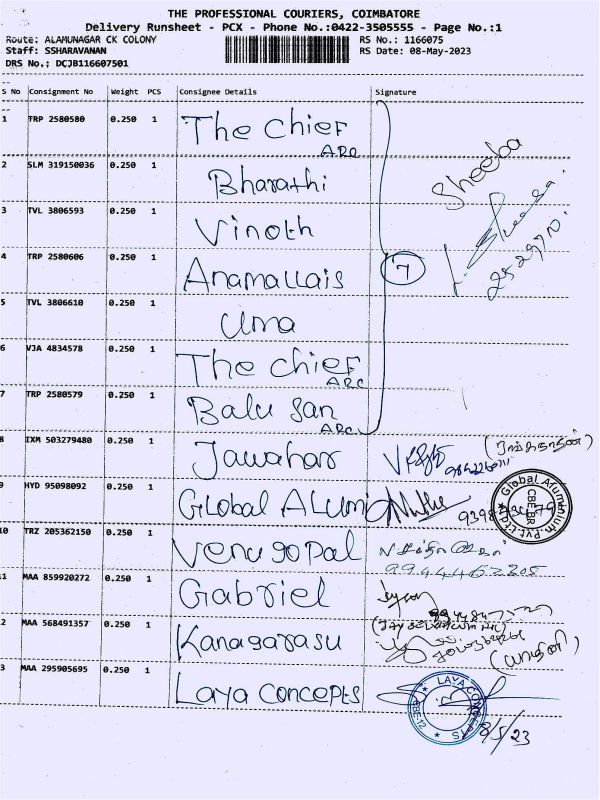 THE PROFESSIONAL COURIERS, COIMBATORE
Delivery Runsheet - PCX - Phone No.:0422-3505555 - Page No.:1
Route: ALAMUNAGAR CK COLONY RS No.: 1166075
Staff: SSHARAVANAN RS Date: 08-May-2023
DRS No.: DCJB116607501
S No Consignment No Weight PCS Consignee Details Signature
1 TRP 2580580 0.250 1 The Chief
ARC
Sheeba
2 SLM 319150036 0.250 1 Bharathi
3 TVL 3806593 0.250 1 Vinoth
4 TRP 2580606 0.250 1 Anamallais 7
5 TVL 3806610 0.250 1 Uma
6 VJA 4834578 0.250 1 The Chief
ARC
7 TRP 2580579 0.250 1 Balu San
ARC
8 IXM 503279480 0.250 1 Jawahar
9 HYD 95098092 0.250 1 Global Alum
Global Aluminium Pvt. Ltd. CBE BR
10 TRZ 205362150 0.250 1 Venugopal
9944462205
11 MAA 859920272 0.250 1 Gabriel
2 MAA 568491357 0.250 1 Kanagarasu
3 MAA 295905695 0.250 1 Laya Concepts
LAYA CONCEPTS CBE-12
8/5/23